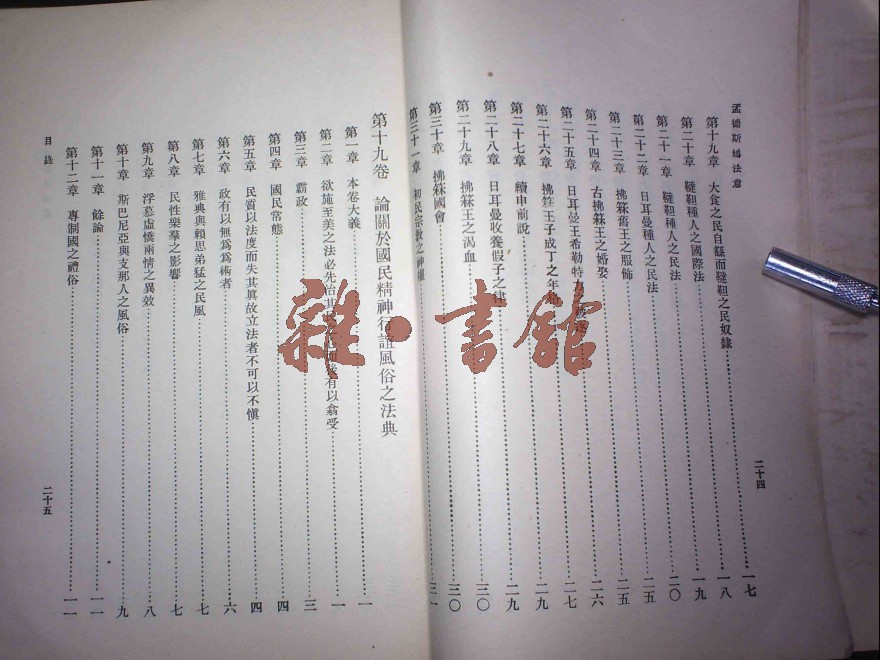 孟德斯鳩法意
第十九章 大食之民自繇而韃靼之民奴隸 一七
第二十章 韃靼種人之國際法 一八
第二十一章 韃靼種人之民法 一九
第二十二章 日耳曼種人之民法 二〇
第二十三章 拂箖舊王之服飾 二五
第二十四章 古拂箖王之婚娶 二六
第二十五章 日耳曼王希勒特 二七
第二十六章 拂箖王子成丁之年 二九
第二十七章 續申前說 二九
第二十八章 日耳曼收養假子之 三〇
第二十九章 拂箖王之渴血 三〇
第三十章 拂箖國會 三一
第三十一章 初民宗教之神權
二十四
第十九卷 論關於國民精神行誼風俗之法典
第一章 本卷大義 一
第二章 欲施至美之法必先治其民 有以翕受 一
第三章 霸政 三
第四章 國民常態 四
第五章 民質以法度而失其眞故立法者不可以不愼 四
第六章 政有以無為為術者 六
第七章 雅典與賴思弟猛之民風 七
第八章 民性樂羣之影響 七
第九章 浮慕虛憍兩情之異效 八
第十章 斯巴尼亞與支那人之風俗 九
第十一章 餘論 一一
第十二章 專制國之禮俗 一一
目錄
二十五
雜·書館